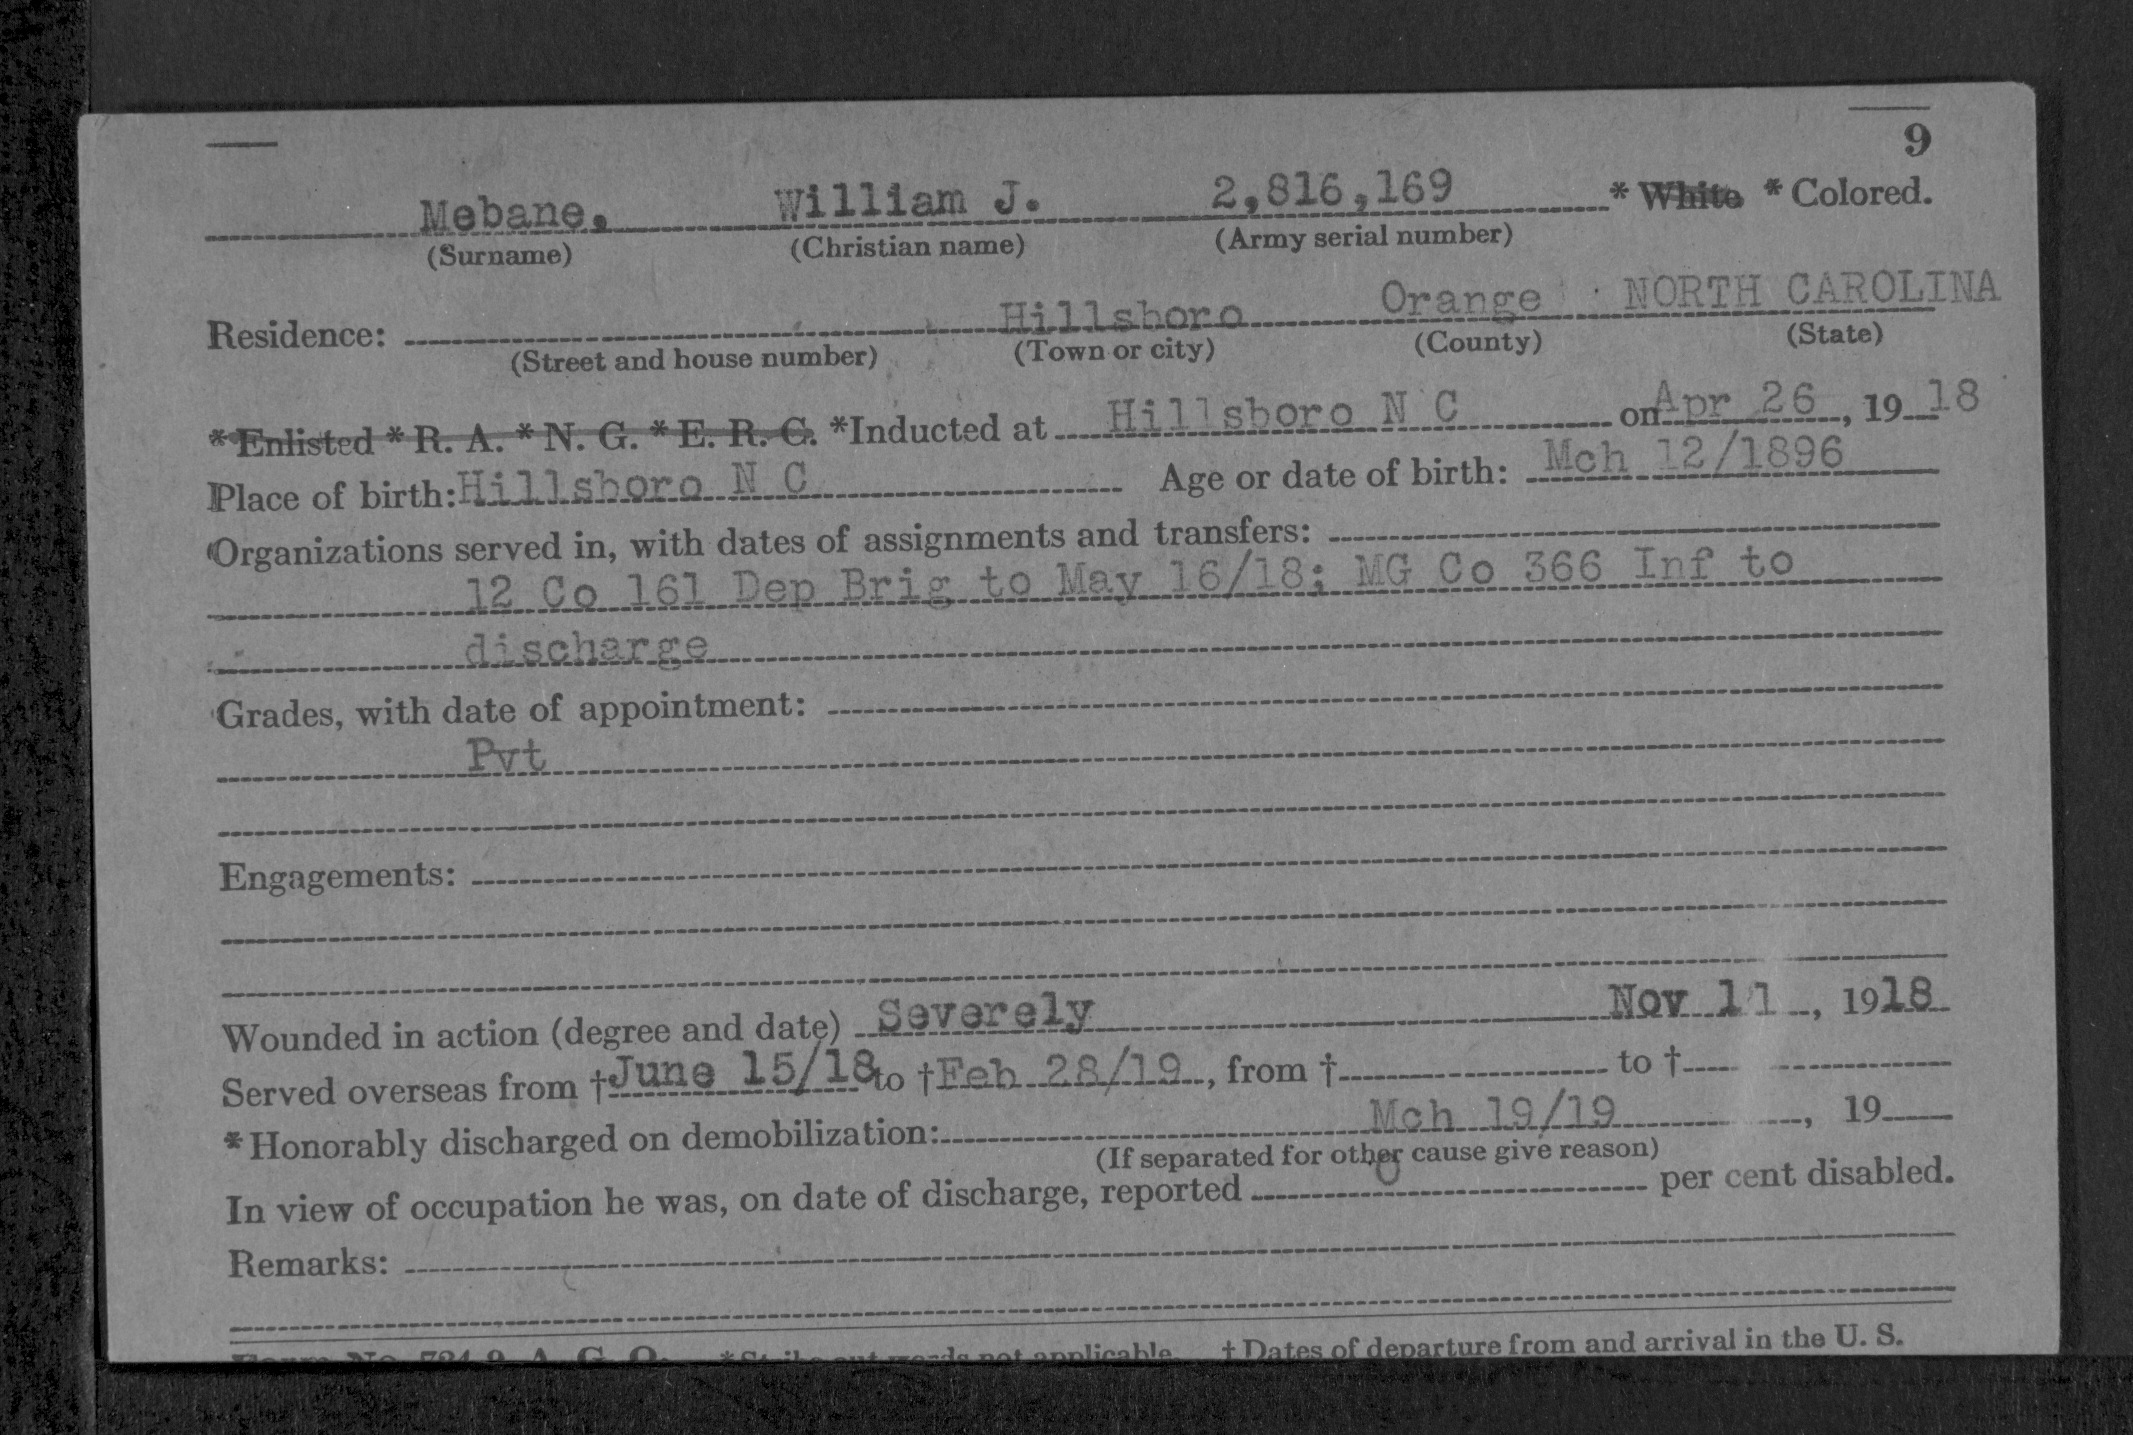 9
Mebane, William J. 2,816,169 * White * Colored.
(Surname) (Christian name) (Army serial number)
Residence: Hillsboro Orange NORTH CAROLINA
(Street and house number) (Town or city) (County) (State)
*Enlisted *R. A. *N. G. *E. R. C. *Inducted at Hillsboro N C on Apr 26, 1918
Place of birth: Hillsboro N C Age or date of birth: Mch 12/1896
Organizations served in, with dates of assignments and transfers:
12 Co 161 Dep Brig to May 16/18; MG Co 366 Inf to
discharge
Grades, with date of appointment:
Pvt
Engagements:
Wounded in action (degree and date) Severely Nov 11, 1918
Served overseas from †June 15/18 to †Feb 28/19, from † to †
*Honorably discharged on demobilization: Mch 19/19, 19
(If separated for other cause give reason)
In view of occupation he was, on date of discharge, reported 0 per cent disabled.
Remarks:
Form No. 724-9, A. G. O. *Strike out words not applicable. † Dates of departure from and arrival in the U. S.